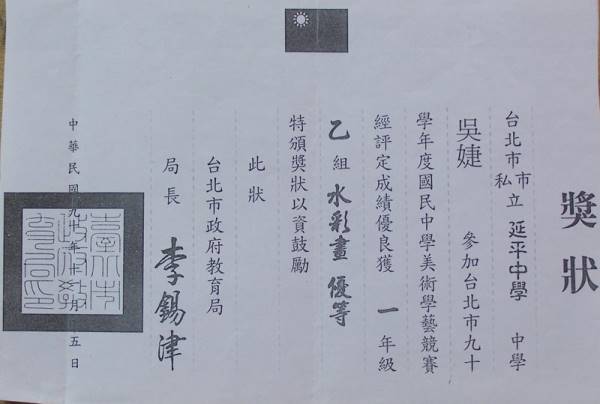 獎狀
台北市市私立延平中學 中學
吳婕 參加台北市九十
學年度國民中學美術學藝競賽
經評定成績優良獲 一 年級
乙組水彩畫優等
特頒獎狀以資鼓勵
此狀
台北市政府教育局
局長 李錫津
中華民國九十年 月 五日
臺北市
政府教
育局印